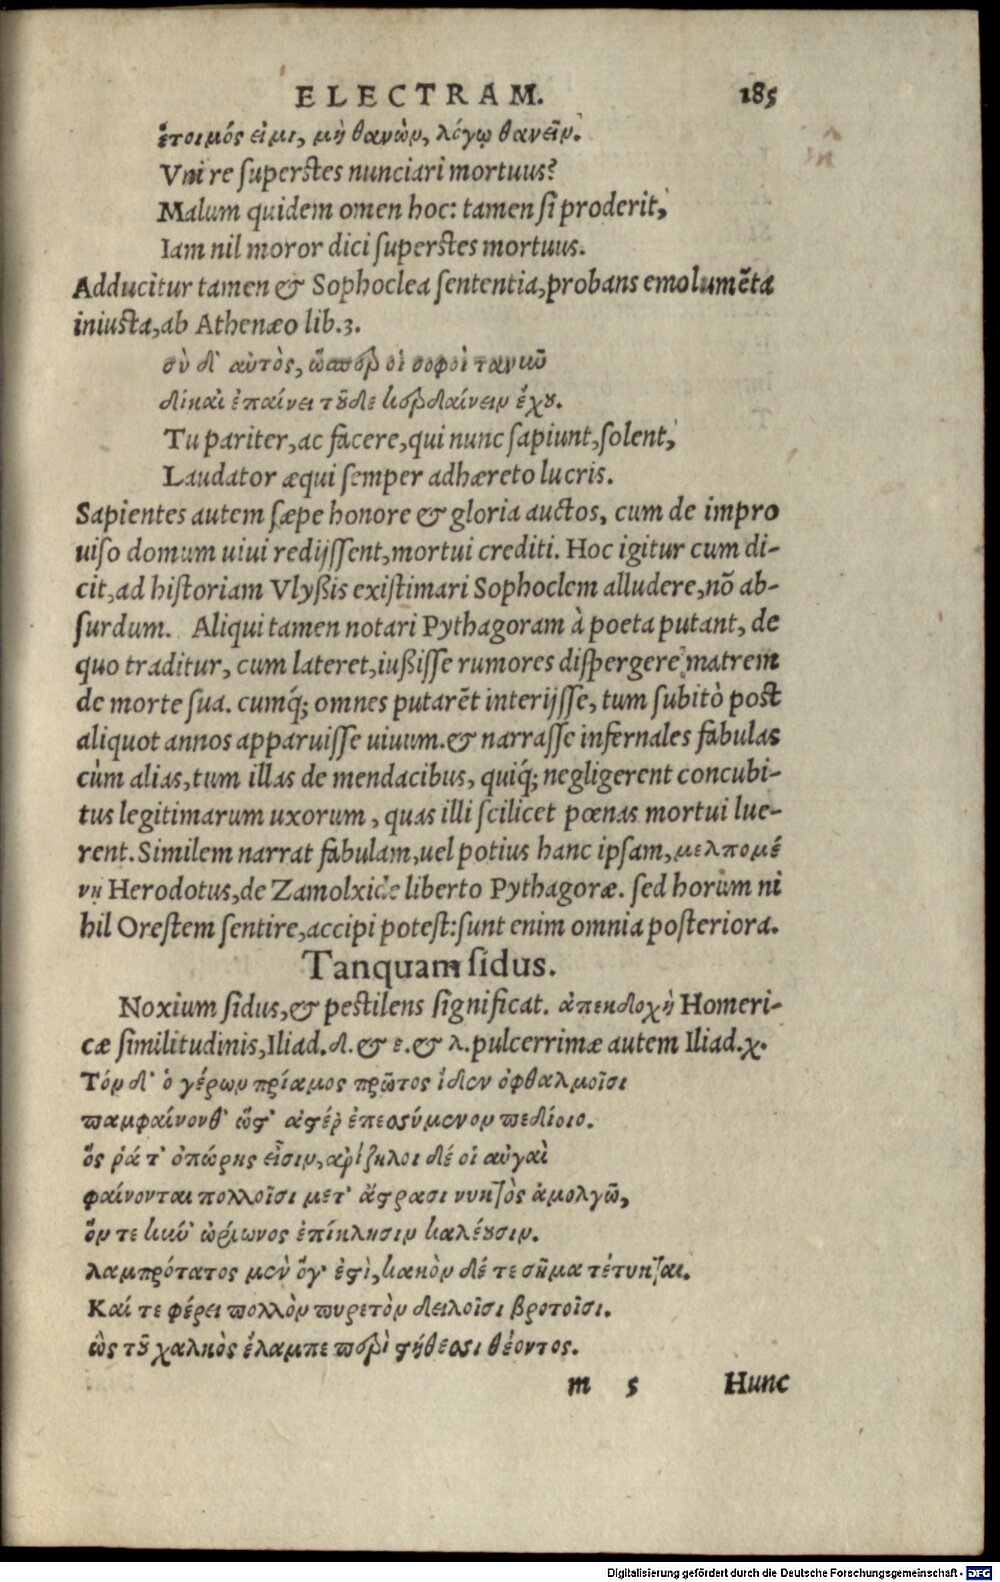 ELECTRAM. 185
ἕτοιμός εἰμι, μὴ θανὼν, λόγῳ θανεῖν.
Vni re superstes nunciari mortuus?
Malum quidem omen hoc: tamen si proderit,
Iam nil moror dici superstes mortuus.
Adducitur tamen & Sophoclea sententia, probans emolumẽta
iniusta, ab Athenæo lib. 3.
σὺ δ' αὐτὸς, ὥσπερ οἱ σοφοὶ τανῦν
δίκαι ἐπαίνει τοῦδε κερδαίνειν ἔχου.
Tu pariter, ac facere, qui nunc sapiunt, solent,
Laudator æqui semper adhæreto lucris.
Sapientes autem sæpe honore & gloria auctos, cum de impro
uiso domum uiui redijssent, mortui crediti. Hoc igitur cum di-
cit, ad historiam Vlyßis existimari Sophoclem alludere, nõ ab-
surdum. Aliqui tamen notari Pythagoram à poeta putant, de
quo traditur, cum lateret, iußisse rumores dispergere matrem
de morte sua. cumq́; omnes putarẽt interijsse, tum subitò post
aliquot annos apparuisse uiuum. & narrasse infernales fabulas
cùm alias, tum illas de mendacibus, quiq́; negligerent concubi-
tus legitimarum uxorum, quas illi scilicet pœnas mortui lue-
rent. Similem narrat fabulam, uel potius hanc ipsam, μελπομέ
νῃ Herodotus, de Zamolxide liberto Pythagoræ. sed horum ni
hil Orestem sentire, accipi potest: sunt enim omnia posteriora.
Tanquam sidus.
Noxium sidus, & pestilens significat. ἀπεκδοχὴ Homeri-
cæ similitudinis, Iliad. δ. & ε. & λ. pulcerrimæ autem Iliad. χ.
Τόν δ' ὁ γέρων πρίαμος πρῶτος ἴδεν ὀφθαλμοῖσι
παμφαίνονθ' ὥστ' ἀστέρ' ἐπεσσύμενον πεδίοιο.
ὅς ῥά τ' ὀπώρης εἶσιν, ἀρίζηλοι δέ οἱ αὐγαὶ
φαίνονται πολλοῖσι μετ' ἄστρασι νυκτὸς ἀμολγῶ,
ὅν τε κύν' ὠρίωνος ἐπίκλησιν καλέουσιν.
λαμπρότατος μὲν ὅγ' ἐστὶ, κακὸν δέ τε σῆμα τέτυκται.
Καί τε φέρει πολλὸν πυρετὸν δειλοῖσι βροτοῖσι.
ὣς τοῦ χαλκὸς ἔλαμπε περὶ στήθεσσι θέοντος.
m 5 Hunc
Digitalisierung gefördert durch die Deutsche Forschungsgemeinschaft - DFG